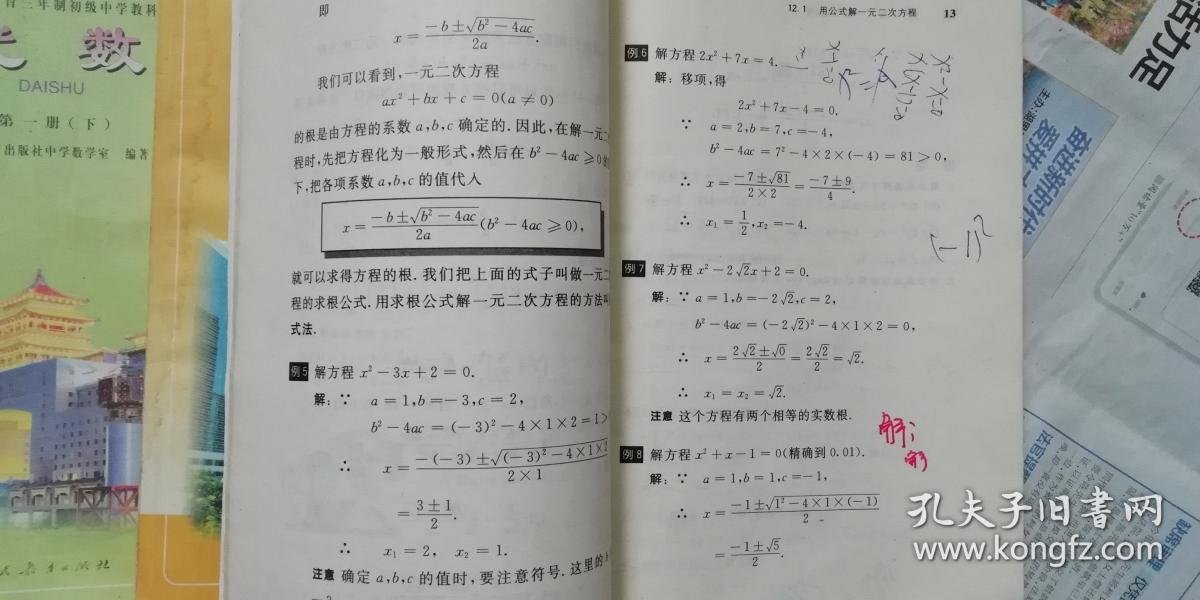 育三年制初级中学教科
数
DAISHU
第一册(下)
出版社中学数学室 编著
即
x=\frac{-b±\sqrt{b²-4ac}}{2a}.
我们可以看到,一元二次方程
ax²+bx+c=0(a≠0)
的根是由方程的系数a,b,c确定的.因此,在解一元
程时,先把方程化为一般形式,然后在b²-4ac≥0
下,把各项系数a,b,c的值代入
x=\frac{-b±\sqrt{b²-4ac}}{2a}(b²-4ac≥0),
就可以求得方程的根.我们把上面的式子叫做一元二
程的求根公式.用求根公式解一元二次方程的方法叫
式法.
例5 解方程x²-3x+2=0.
解:∵ a=1,b=-3,c=2,
b²-4ac=(-3)²-4×1×2=1>
∴ x=\frac{-(-3)±\sqrt{(-3)²-4×1×2}}{2×1}
=\frac{3±1}{2}.
∴ x₁=2, x₂=1.
注意 确定a,b,c的值时,要注意符号.这里的
12.1 用公式解一元二次方程 13
例6 解方程2x²+7x=4.
解:移项,得
2x²+7x-4=0.
∵ a=2,b=7,c=-4,
b²-4ac=7²-4×2×(-4)=81>0,
∴ x=\frac{-7±\sqrt{81}}{2×2}=\frac{-7±9}{4}.
∴ x₁=\frac{1}{2},x₂=-4.
例7 解方程x²-2√2x+2=0.
解:∵ a=1,b=-2√2,c=2,
b²-4ac=(-2√2)²-4×1×2=0,
∴ x=\frac{2√2±√0}{2}=\frac{2√2}{2}=√2.
∴ x₁=x₂=√2.
注意 这个方程有两个相等的实数根.
例8 解方程x²+x-1=0(精确到0.01).
解:∵ a=1,b=1,c=-1,
∴ x=\frac{-1±\sqrt{1²-4×1×(-1)}}{2}
=\frac{-1±√5}{2}.
x²-x=0
(-1)²
解:
活力足
奋进新时代
孔夫子旧书网
www.kongfz.com